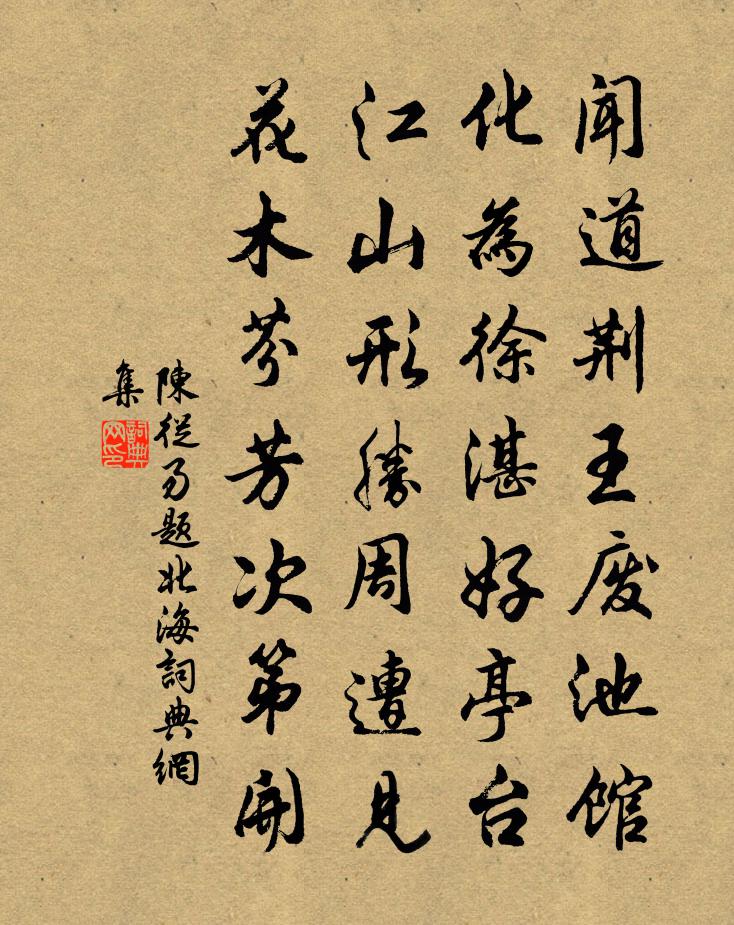 聞道荆王废池馆
化為徐湛好亭台
江山形勝周遭見
花木芬芳次第開
陳從易题北海詞典網
集
詞典网印